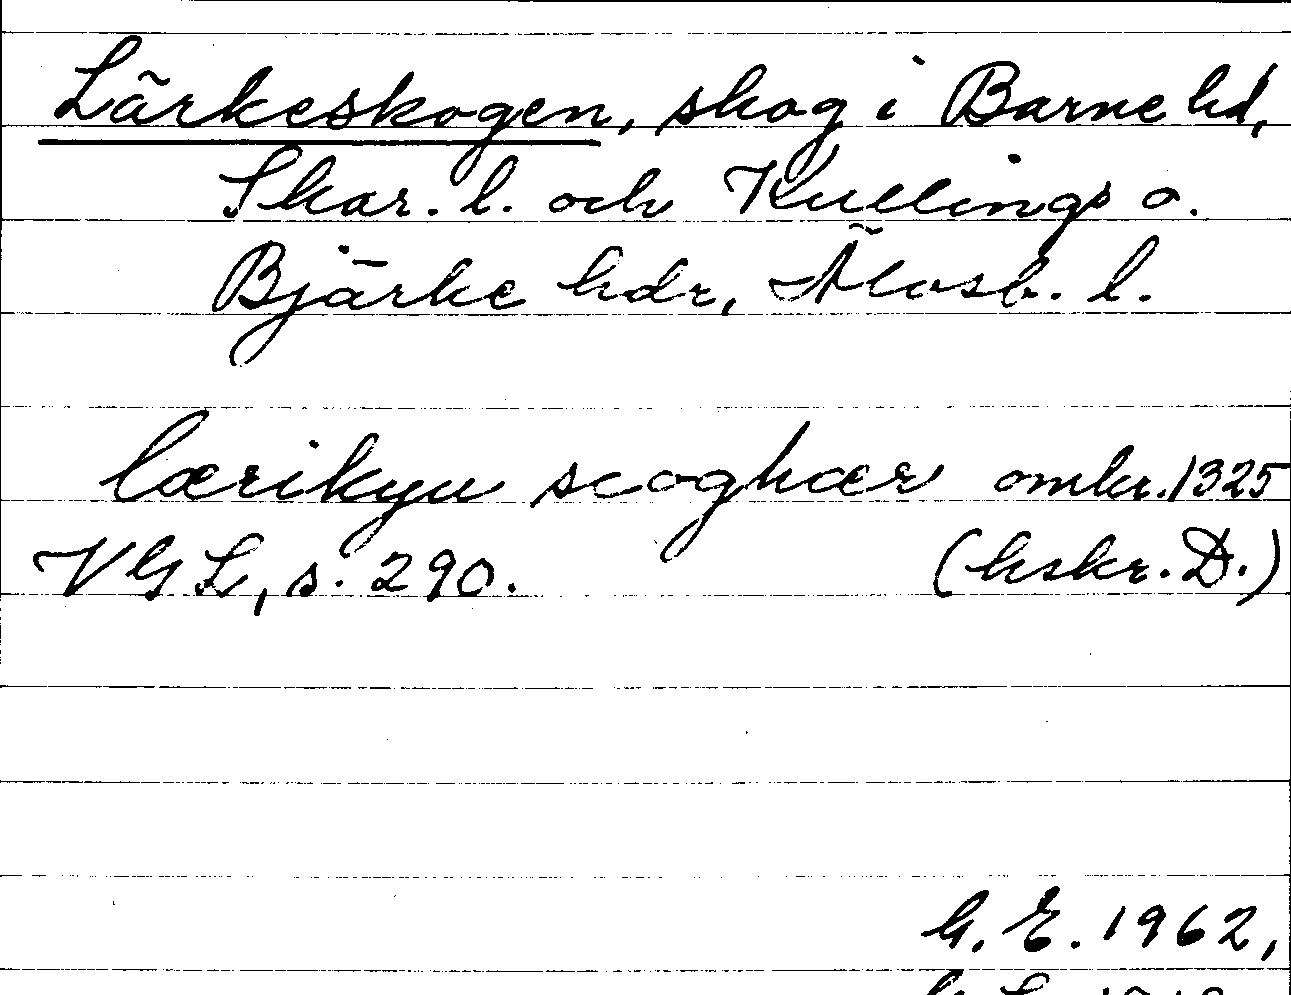 Lärkeskogen, skog i Barne hd,
Skar. l. och Kullings o.
Bjärke hdr, Älvsb. l.
lærikyu scoghær omkr. 1325
VGL, s. 290. (hskr. D.)
G. E. 1962,